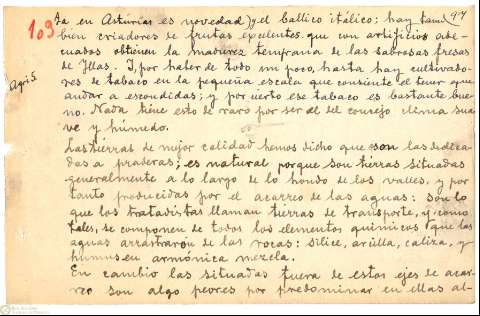 103
94
ta en Asturias es novedad) y el ballico itálico; hay tam
bien criadores de frutas excelentes que con artificios ade-
cuados obtienen la madurez temprana de las sabrosas fresas
de Illas. I, por haber de todo un poco, hasta hay cultivado-
Agri5.
res de tabaco en la pequeña escala que consiente el tener que
andar a escondidas; y por cierto ese tabaco es bastante bue-
no. Nada tiene esto de raro por ser el del concejo clima sua
ve y húmedo.
Las tierras de mejor calidad hemos dicho que son las dedica-
das a praderas; es natural porque son tierras situadas
generalmente a lo largo de lo hondo de los valles, y por
tanto producidas por el acarreo de las aguas: son lo
que los tratadistas llaman tierras de transporte, y como
tales, se componen de todos los elementos químicos que las
aguas arrastraron de las rocas: sílice, arcilla, caliza, y
humus en armónica mezcla.
En cambio las situadas fuera de estos ejes de acar-
reo son algo peores por predominar en ellas al-